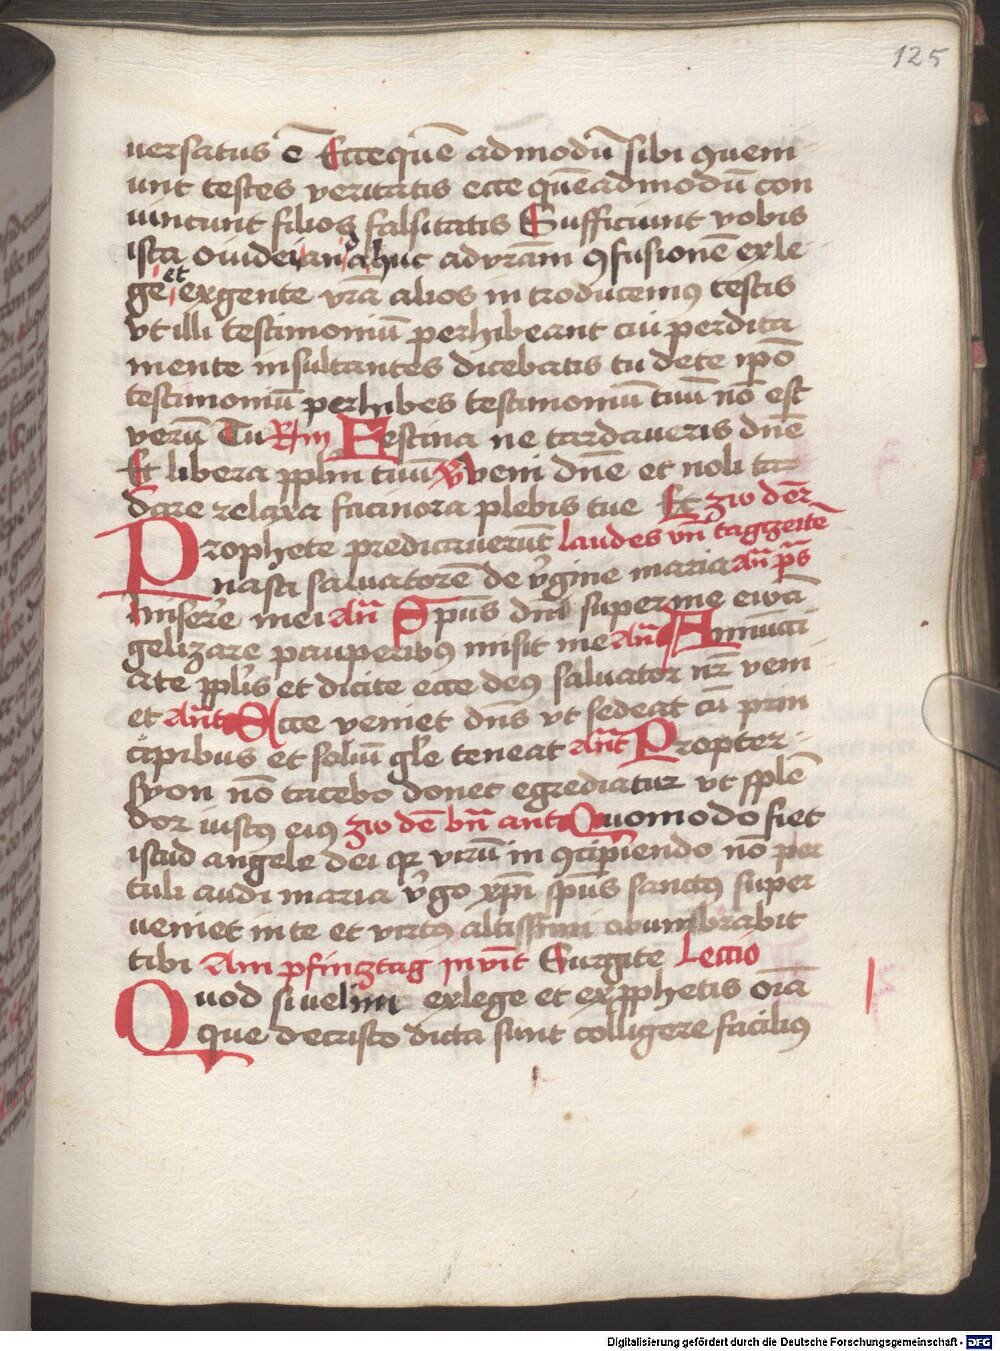 125
uersatus ē Ecce quē admodū sibi ꝯuem
unt testes veritatis ecce quēadmodū con
uincunt filios falsitatis Sufficiunt vobis
ista o iudei an adhuc ad vrām ꝯfusionē ex le
ge et ex gente vrā alios introducemꝰ testis
vt illi testimoniū perhibeant cui perdita
mente insultantes dicebatis tu de te ipō
testimoniū perhibes testimoniū tuū nō est
verū Tu Rm Festina ne tardaueris dnē
Et libera pplm tuū V veni dnē et noli tar
dare relaxa facinora plebis tue Et zw dēr
Prophete predicauerūt laudes vn̄ tagzeitē
nasci saluatorē de v̓gine maria an̄ ps̄
Miserē mei an̄ Spūs dnī super me ewā
gelizare pauperibꝰ misit me an̄ Annūcci
ate pplīs et dicite ecce deꝰ saluator nr̄ veni
et an̄t Ecce veniet dn̄s vt sedeat cū prin
cipibus et soliū glē teneat an̄t Propter
syon nō tacebo donec egrediatur vt splē
dor iustꝰ eiꝰ zw dē bn̄ ant Quomodo fiet
istud angele dei qr virū in ꝯcipiendo nō per
tuli audi maria v̓go xpī spūs sanctꝰ super
ueniet in te et virtꝰ altissimi obumbrabit
tibi Am pfincztag in vit̄ Surgite Lectio
Quod si velim ex lege et ex pphetis oīa
que de cristo dicta sunt colligere faciliꝰ
Digitalisierung gefördert durch die Deutsche Forschungsgemeinschaft - DFG